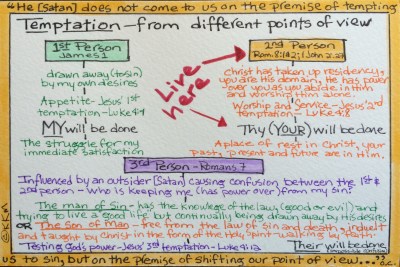 "He [Satan] does not come to us on the premise of tempting
Temptation - from different points of view
1st Person
James 1
drawn away (to sin)
by my own desires
Appetite - Jesus' 1st
temptation - Luke 4:4
MY will be done
The struggle for my
immediate satisfaction
Live
here
2nd Person
Rom. 8:1&2; 1 Jn
Christ has taken up residency,
you are His domain, He has power
over you as you abide in Him
and worship Him alone.
Worship and Service - Jesus' 2nd
temptation - Luke 4:8
Thy (YOUR) will be done
A place of rest in Christ, your
past, present and future are in Him.
3rd Person - Romans 7
Influenced by an outsider [Satan] causing confusion between the 1st &
2nd person - Who is keeping me (has power over) from my sin?
The man of sin - has the knowledge of the law, (good or evil) and
trying to live a good life but continually being drawn away by his desires
OR The Son of Man - free from the law of sin and death, and
taught by Christ in the form of the Holy Spirit - walking in faith
Testing God's power - Jesus' 3rd temptation - Luke 4:12
Their will be done
us to sin, but on the premise of shifting our point of view."